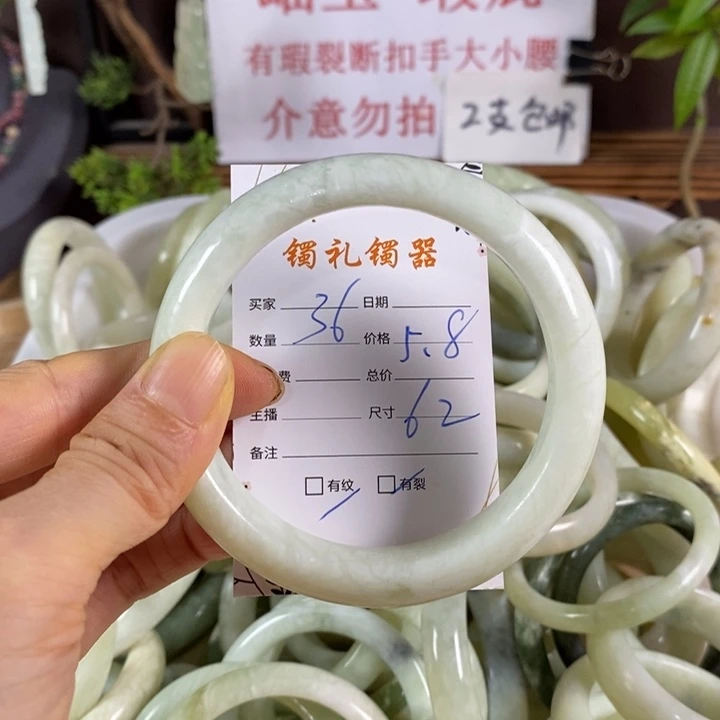 岫玉 瑕疵
有瑕裂断扣手大小腰
介意勿拍
2支包邮
镯礼镯器
买家 36 日期
数量 价格 5.8
费 总价
主播 尺寸 62
备注
有纹 有裂